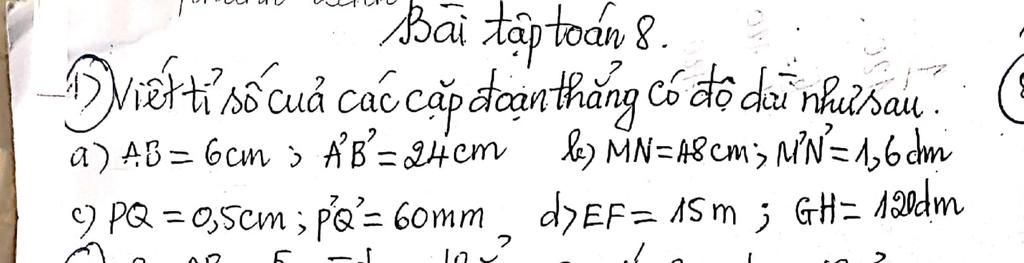 Bài tập toán 8.
1) Viết tỉ số của các cặp đoạn thẳng có độ dài như sau.
a) AB = 6cm ; A'B' = 24cm b) MN = 48cm ; M'N' = 1,6dm
c) PQ = 0,5cm ; P'Q' = 60mm d) EF = 15m ; GH = 120dm